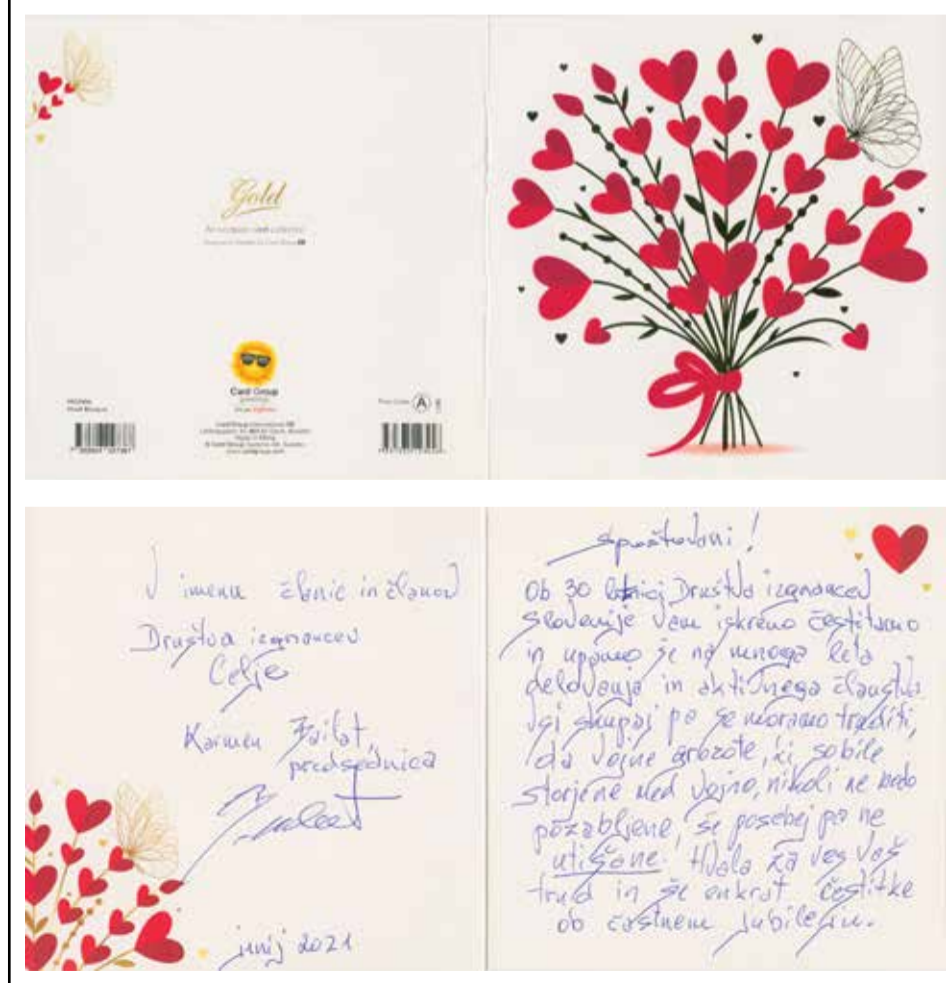 Gold
Card Group
A
V imenu članic in članov
Društva izgnancev
Celje
Karmen
predsednica
junij 2021
Spoštovani!
Ob 30 letnici Društva izgnancev
Slovenije Vam iskreno čestitamo
in upamo še na mnoga leta
delovanja in aktivnega članstva.
Vsi skupaj pa se moramo truditi,
da vojne grozote, ki so bile
storjene med vojno, nikoli ne bodo
pozabljene, še posebej pa ne
utišane. Hvala za ves Vaš
trud in še enkrat čestitke
ob častnem jubileju.